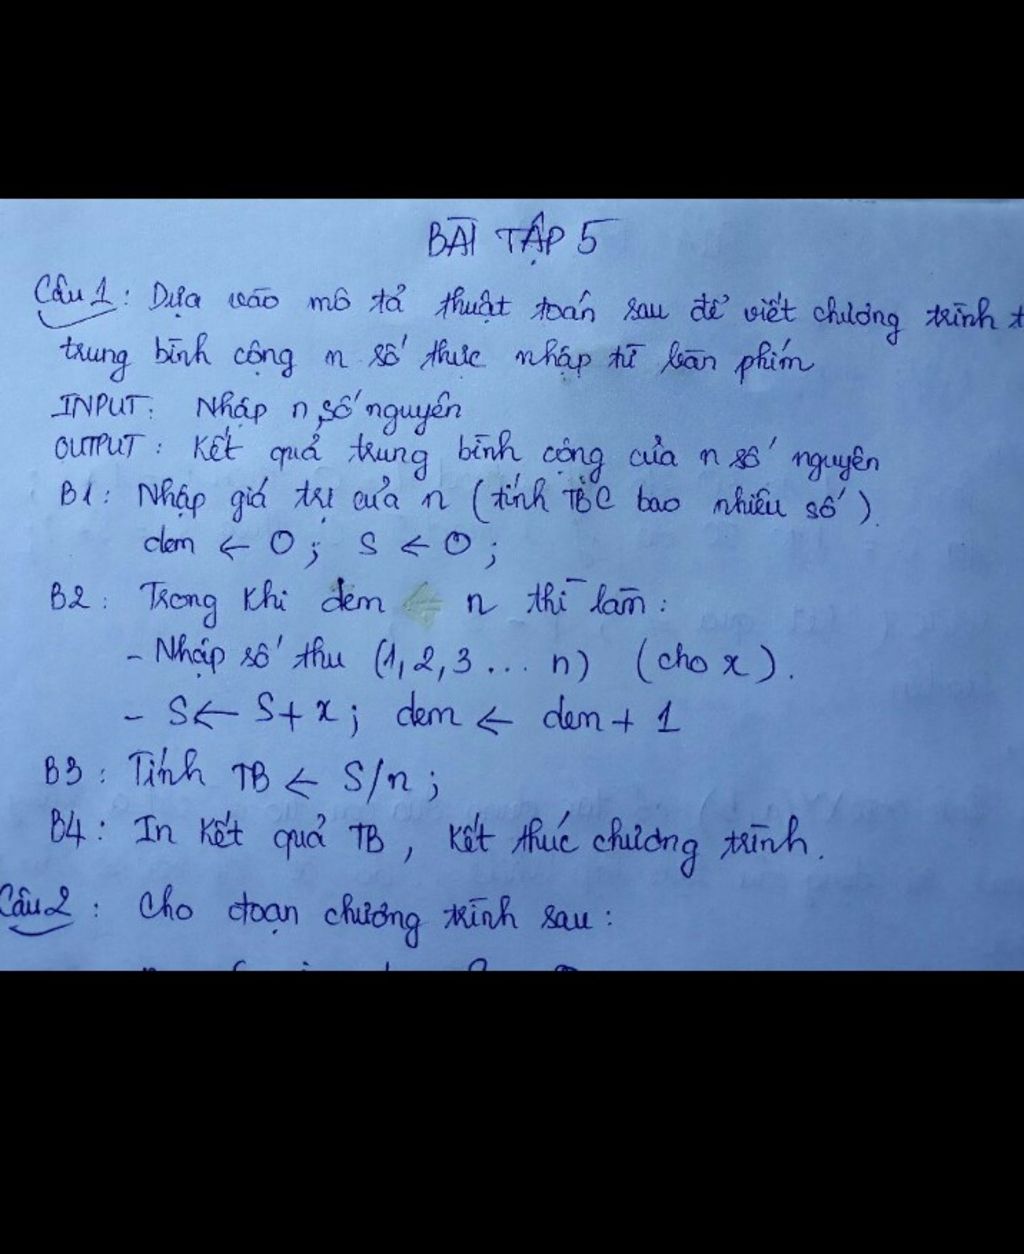 BÀI TẬP 5
Câu 1: Dựa vào mô tả thuật toán sau để viết chương trình t
trung bình cộng n số thực nhập từ bàn phím
INPUT: Nhập n số nguyên
OUTPUT: Kết quả trung bình cộng của n số nguyên
B1: Nhập giá trị của n (tính TBC bao nhiêu số).
dem ← 0; S ← 0;
B2: Trong khi dem n thì làm:
- Nhập số thu (1, 2, 3 ... n) (cho x).
- S ← S + x; dem ← dem + 1
B3: Tính TB ← S/n;
B4: In kết quả TB, kết thúc chương trình.
Câu 2: Cho đoạn chương trình sau: